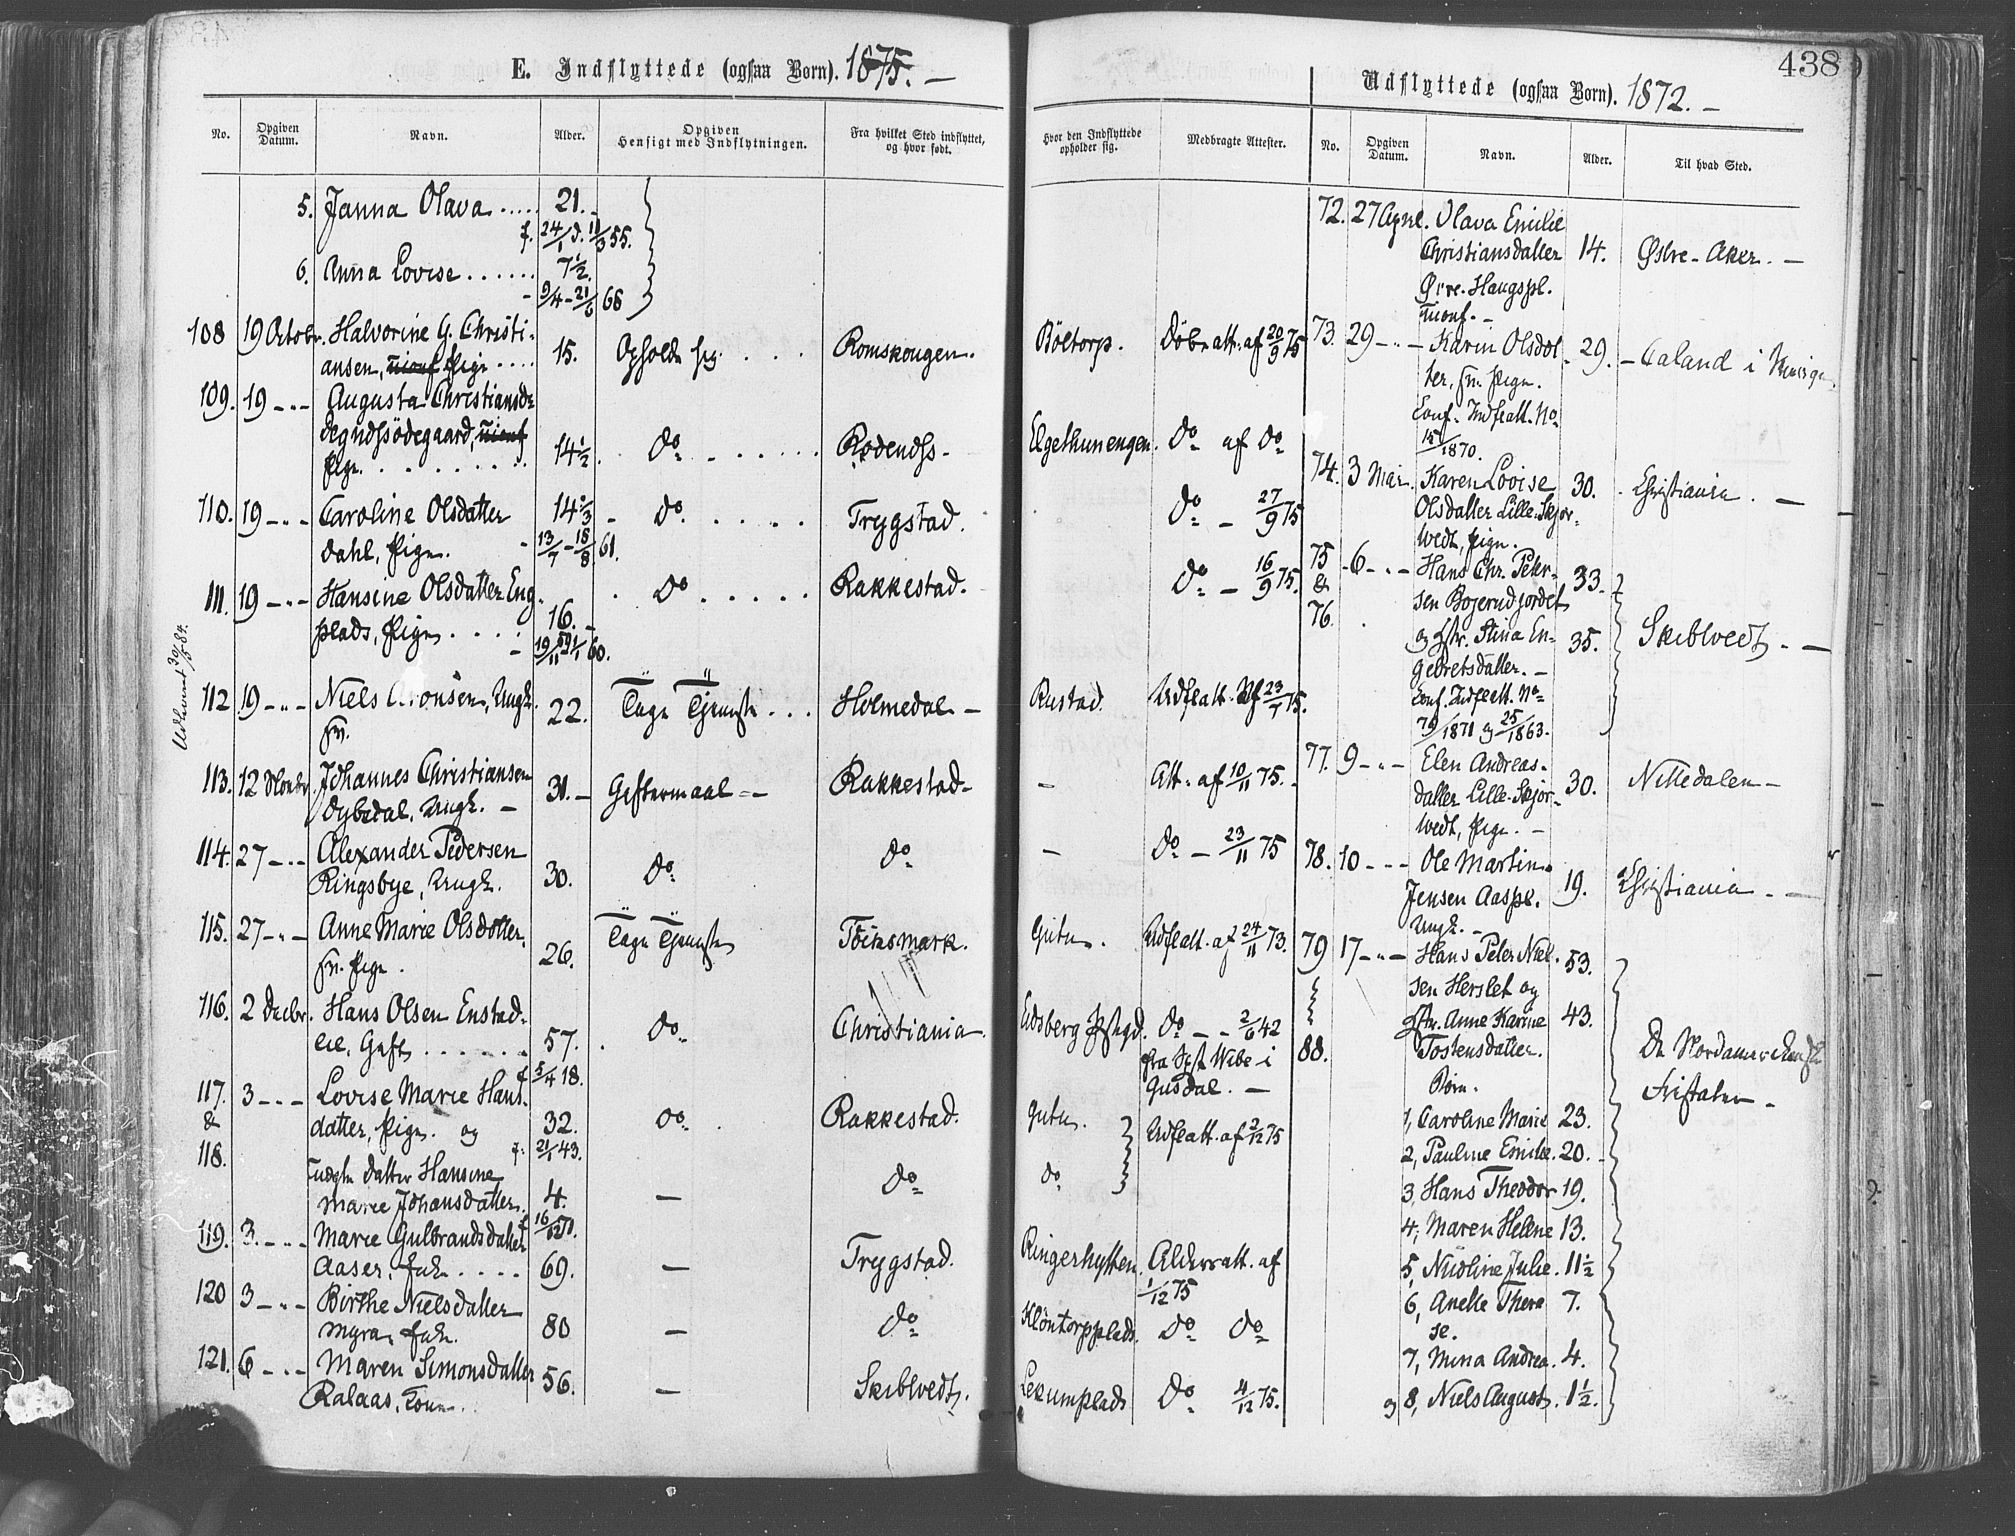 438
E. Indflyttede (ogsaa Børn). 1875. —
No. Opgiven Datum. Navn. Alder. Opgiven Hensigt med Indflytningen. Fra hvilket Sted indflyttet, og hvor født. Hvor den Indflyttede opholder sig. Medbragte Attester.
5. Janna Olava . . . . . 21. —
f. 24/1 d. 11/3 55.
6. Anna Lovise . . . . . . 7 1/2.
9/4 — 21/6 66
108 19 Octobr. Halvorine G. Christi- Böltorp. Döbeatt. af 20/9 75
ansen, Pige . . . . 15. Opholde sig . . . . Romskougen.
109. 19 — " — Augusta Christiansdr
Pige . . . . . . . . 14 1/2. do . . . . . Rödenæs. do af do
110. 19 — " — Caroline Olsdatter 14 2/3 — do . . . . . Trygstad. do — 27/9 75
Dahl, Pige. 13/7 — 18/8 61.
111. 19 — " — Hansine Olsdatter Eng- do . . . . . Rakkestad. do — 16/9 75.
plads, Pige . . . . 16. —
Udflyttet 30/5 84.
112 19 — " — Niels Aronsen, Ungk. 22. Tage Tjeneste . . . Holmedal — Rustad. Udflatt. af 23/7 75.
fv.
113. 12 Novbr. Johannes Christiansen 31. — Giftermaal — Rakkestad — — Att. af 10/11 75. —
Dybedal, Ungk. —
114. 27 — " — Alexander Pedersen do — do — 23/11 75
Ringsbye, Ungk. 30. do
115. 27 — " — Anne Marie Olsdatter, 26. Tage Tjeneste Töiksmark. Gutu. Udflatt. af 24/11 73.
fv. Pige.
116. 2 Decbr. Hans Olsen Enstad- do Christiania. Edsberg Præstegd. do — — 2/6 42
eie, Gift . . . . . . . 57. fra Sgpst Wibe i
f 5/4 18. Gusdal. —
117. 3 — " — Lovise Marie Hans- Rakkestad. Gutu.
& datter, Pige. og 32. do Udflatt. af 2/12 75
118. f. 21/1 43.
Datter Hansine do do
Marie Johansdatter. 4. —
119. 3. — " — Marie Gulbrandsdatter Trygstad. Ringerhytten. Aldersatt. af
Aaser, Enke . . . . 69. — 1/12 75
120 3 — " — Birthe Nielsdatter do Klöntorpplads. do do
Myra, Enke. 80 —
121. 6 — " — Maren Simonsdatter 56. — Skiblvedt. Lekumplads do 4/12 75.
Ralaas, Kone.
Udflyttede (ogsaa Børn). 1872. —
No. Opgiven Datum. Navn. Alder. Til hvad Sted.
72. 27 April. Olava Emilie
Christiansdatter 14. Østre-Aker. —
Øvre-Haugspl.
uconf. —
73. 29 — " — Karin Olsdat- 29.
ter, fv. Pige.
Conf. Indflatt. No
15/1870.
74. 3 Mai. Karen Lovise 30. Christiania. —
Olsdatter Lille-Skjør-
vedt, Pige.
75 6 — " — Hans Chr. Peter- 33.
& sen Bøjerudjordet
76. og Hstr. Stina En- 35. Skiblvedt. —
gebretsdatter. —
Conf. Indflatt. No
79/1871 og 25/1863.
77. 9 — " — Elen Andreas-
datter Lille-Skjør- 30. Nittedalen —
vedt, Pige. —
78. 10 — " — Ole Martin
Jensen Aaspl. 19. Christiania. —
Ungk. —
79 17 — " — Hans Peter Niel- 53.
sen Herslet og
Hstr. Anne Karine 43.
88. Tostensdatter. De Nordamerikanske
Børn. Fristater —
1, Caroline Marie 23.
2, Pauline Emilie. 20.
3, Hans Theodor 19.
4, Maren Helene 13.
5, Nicoline Julie. 11 1/2
6, Anette There 7.
se.
7, Mina Andrea. 4.
og 8, Niels August. 1 1/2.